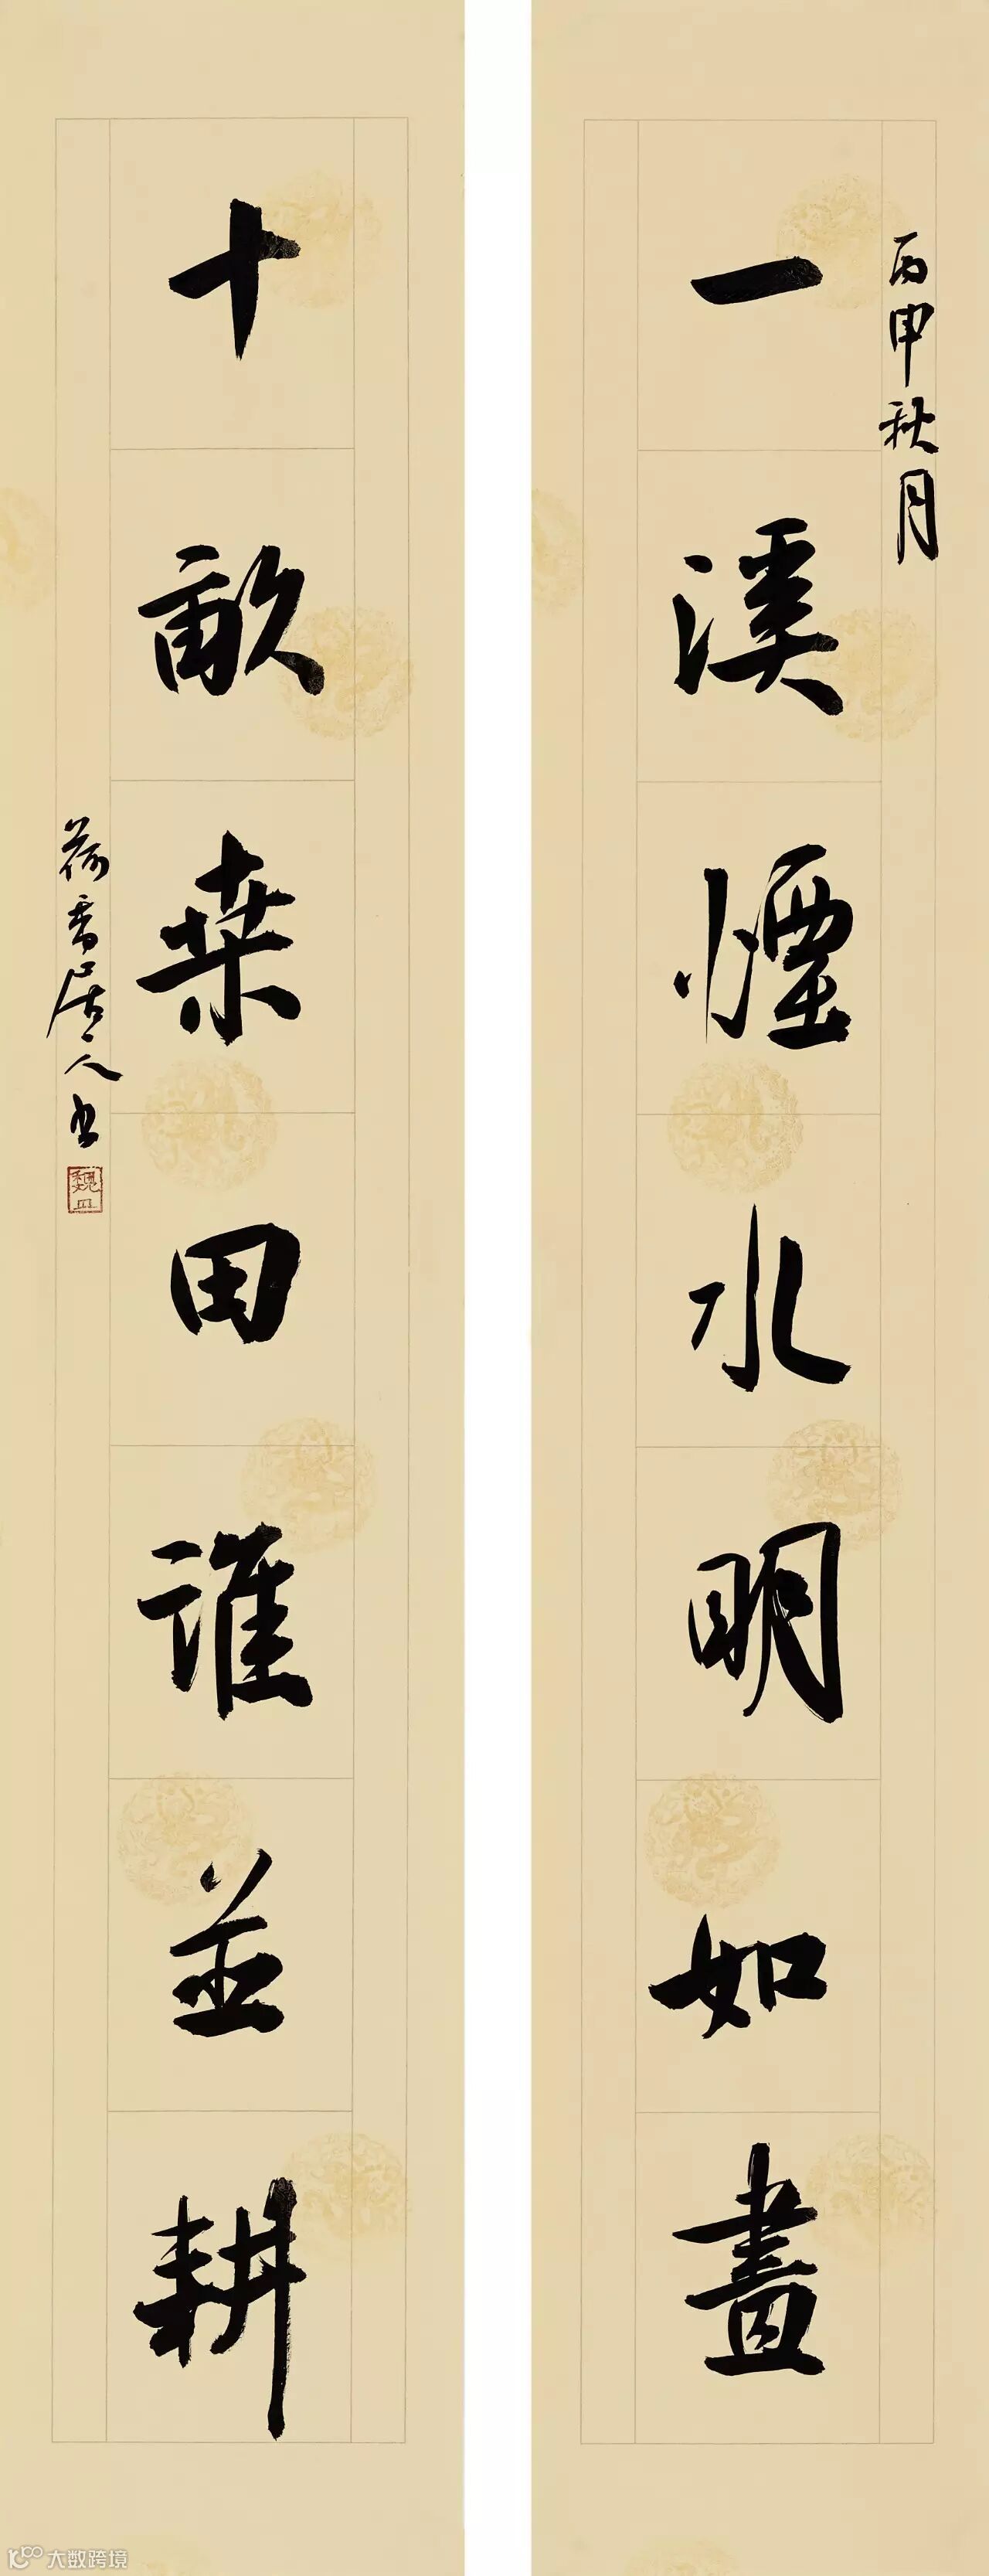 丙申秋月
一溪煙水明如畫
十畝桒田誰並耕
荷香居人书
大数跨境